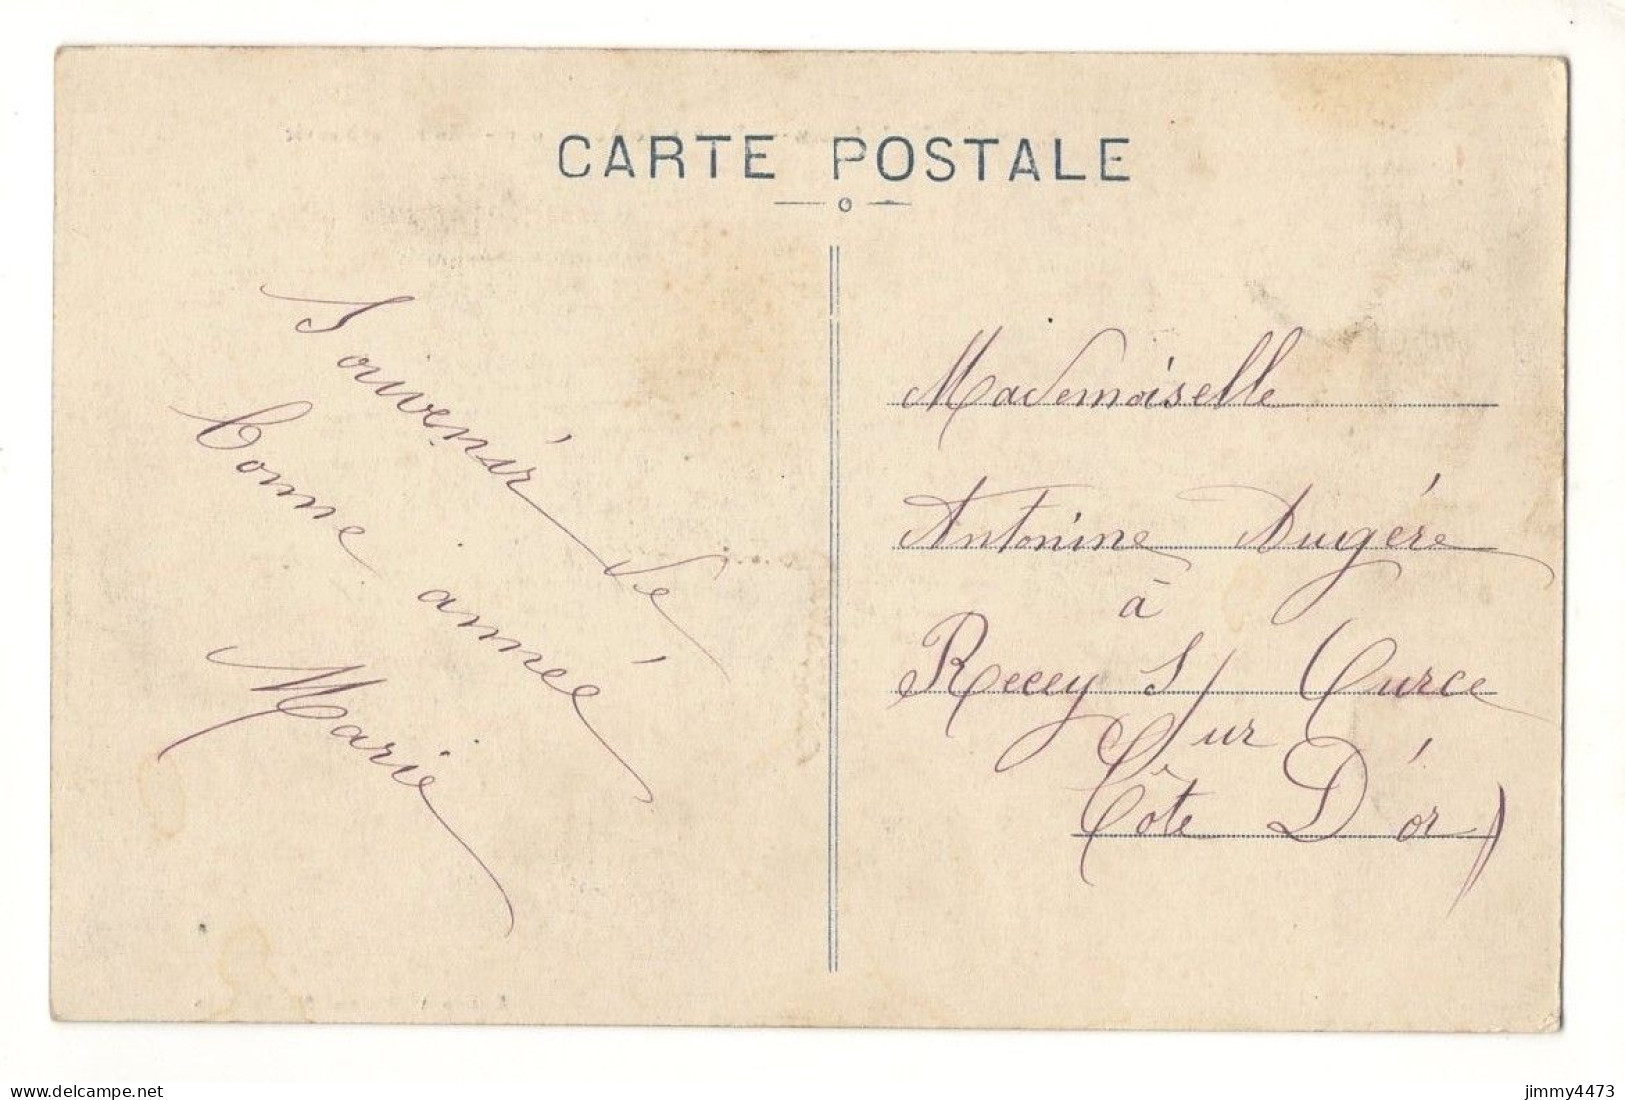 CARTE POSTALE
Souvenir de
Bonne année
Marie
Mademoiselle
Antonine Augére
à
Recey S/ Ource
Sur
Côte D'or)
delcampe.net
jimmy4473